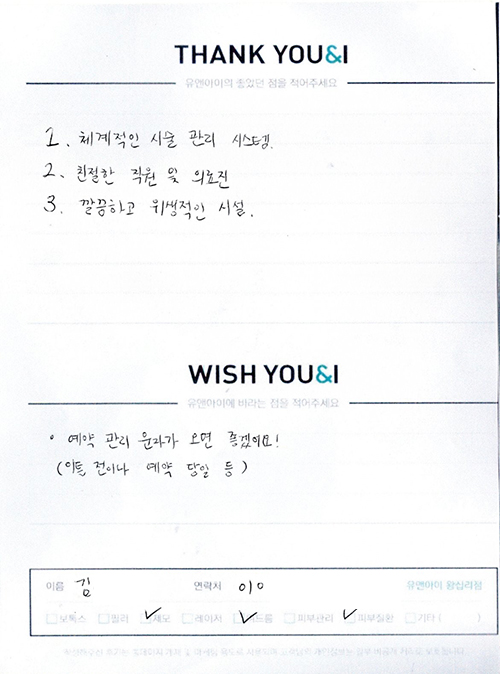 THANK YOU&I
유앤아이의 좋았던 점을 적어주세요
1. 체계적인 시술 관리 시스템.
2. 친절한 직원 및 의료진
3. 깔끔하고 위생적인 시설.
WISH YOU&I
유앤아이에 바라는 점을 적어주세요
• 예약 관리 문자가 오면 좋겠어요!
(이틀 전이나 예약 당일 등)
이름 김 연락처 010 유앤아이 왕십리점
보톡스 필러 제모 레이저 여드름 피부관리 피부질환 기타 ( )